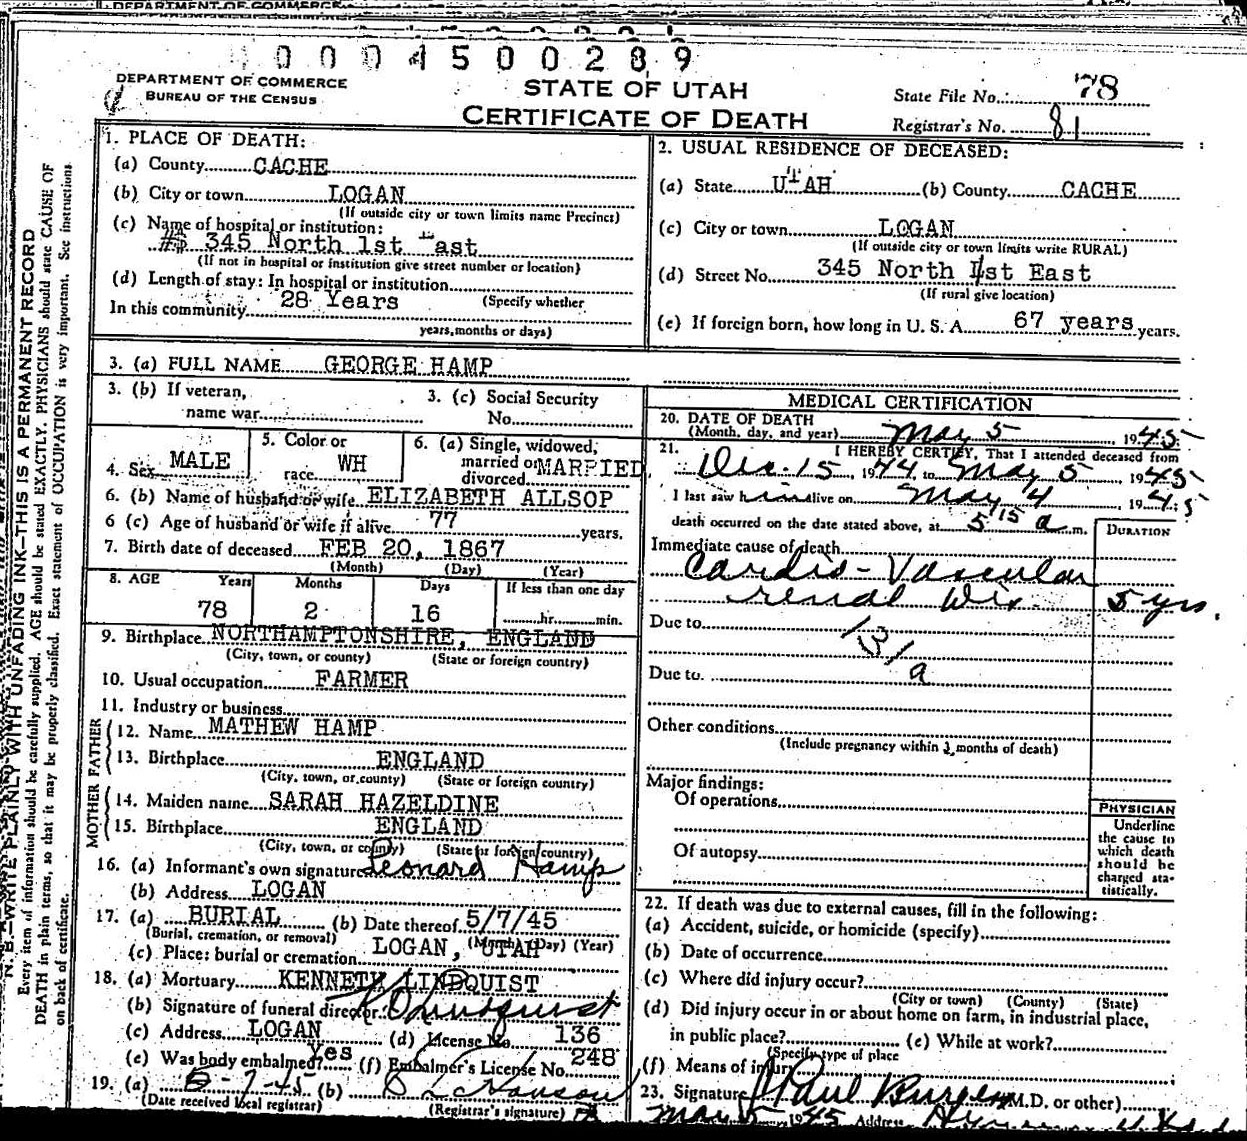 DEPARTMENT OF COMMERCE
0 0 0 4 5 0 0 2 8 9
DEPARTMENT OF COMMERCE
BUREAU OF THE CENSUS
STATE OF UTAH
CERTIFICATE OF DEATH
State File No. 78
Registrar's No. 81
N. B.—WRITE PLAINLY WITH UNFADING INK—THIS IS A PERMANENT RECORD
Every item of information should be carefully supplied. AGE should be stated EXACTLY. PHYSICIANS should state CAUSE OF
DEATH in plain terms, so that it may be properly classified. Exact statement of OCCUPATION is very important. See instructions
on back of certificate.
1. PLACE OF DEATH:
(a) County CACHE
(b) City or town LOGAN
(If outside city or town limits name Precinct)
(c) Name of hospital or institution:
345 North 1st East
(If not in hospital or institution give street number or location)
(d) Length of stay: In hospital or institution
In this community 28 Years (Specify whether
years, months or days)
2. USUAL RESIDENCE OF DECEASED:
(a) State UTAH (b) County CACHE
(c) City or town LOGAN
(If outside city or town limits write RURAL)
(d) Street No. 345 North 1st East
(If rural give location)
(e) If foreign born, how long in U. S. A. 67 years years.
3. (a) FULL NAME GEORGE HAMP
3. (b) If veteran, name war
3. (c) Social Security No.
4. Sex MALE
5. Color or race WH
6. (a) Single, widowed, married or divorced MARRIED
6. (b) Name of husband or wife ELIZABETH ALLSOP
6 (c) Age of husband or wife if alive 77 years.
7. Birth date of deceased FEB 20, 1867
(Month) (Day) (Year)
8. AGE Years Months Days If less than one day
78 2 16 hr. min.
9. Birthplace NORTHAMPTONSHIRE, ENGLAND
(City, town, or county) (State or foreign country)
10. Usual occupation FARMER
11. Industry or business
FATHER
12. Name MATHEW HAMP
13. Birthplace ENGLAND
(City, town, or county) (State or foreign country)
MOTHER
14. Maiden name SARAH HAZELDINE
15. Birthplace ENGLAND
(City, town, or county) (State or foreign country)
16. (a) Informant's own signature Leonard Hamp
(b) Address LOGAN
17. (a) BURIAL (b) Date thereof 5/7/45
(Burial, cremation, or removal) (Month) (Day) (Year)
(c) Place: burial or cremation LOGAN, UTAH
18. (a) Mortuary KENNETH LINDQUIST
(b) Signature of funeral director K O Lindquist
(c) Address LOGAN (d) License No. 136
(e) Was body embalmed? Yes (f) Embalmer's License No. 248
19. (a) 5-7-45 (b)
(Date received local registrar) (Registrar's signature)
MEDICAL CERTIFICATION
20. DATE OF DEATH
(Month, day, and year) May 5, 1945
21. I HEREBY CERTIFY, That I attended deceased from
Dec. 15, 1944, to May 5, 1945
I last saw him alive on May 4, 1945
death occurred on the date stated above, at 5 15 a m.
DURATION
Immediate cause of death
Cardio-Vascular
renal Dis. 5 yrs.
Due to 131
a
Due to
Other conditions
(Include pregnancy within 3 months of death)
Major findings:
Of operations
Of autopsy
PHYSICIAN
Underline
the cause to
which death
should be
charged sta-
tistically.
22. If death was due to external causes, fill in the following:
(a) Accident, suicide, or homicide (specify)
(b) Date of occurrence
(c) Where did injury occur?
(City or town) (County) (State)
(d) Did injury occur in or about home on farm, in industrial place,
in public place? (e) While at work?
(Specify type of place
(f) Means of injury
23. Signature Paul (M.D. or other)
May 5 1945 Address